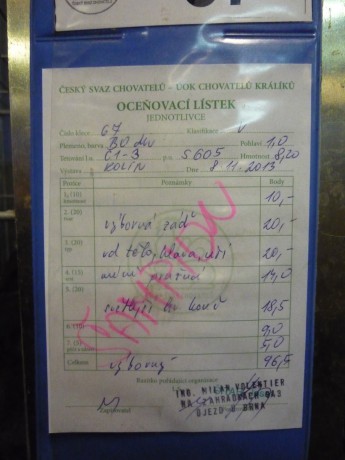 ČESKÝ SVAZ CHOVATELŮ - ÚOK CHOVATELŮ KRÁLÍKŮ
OCEŇOVACÍ LÍSTEK
JEDNOTLIVCE
Číslo klece 67 Klasifikace V
Plemeno, barva Pohlaví 1,0
Tetování l.u. C1-3 p.u. S605 Hmotnost 8,20
Výstava KOLÍN Dne 8.11.2013
Pozice Poznámky Body
1. (10) 10,-
2. (20) výborná záď 20,-
3. (20) typ vd tělo, hlava, uši 20,-
4. (15) méně 14,0
5. (20) 18,5
6. (10) 9,0
7. (5) 5,0
Celkem výborný 96,5
ŠAMPION
Razítko pořádající organizace
ING. MILAN VOLENTIER
NA ZAHRÁDKÁCH
ÚJEZD U BRNA